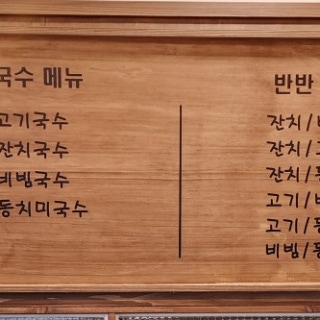 국수 메뉴
고기국수
잔치국수
비빔국수
동치미국수
반반
잔치/
잔치/고
잔치/
고기/
고기/
비빔/